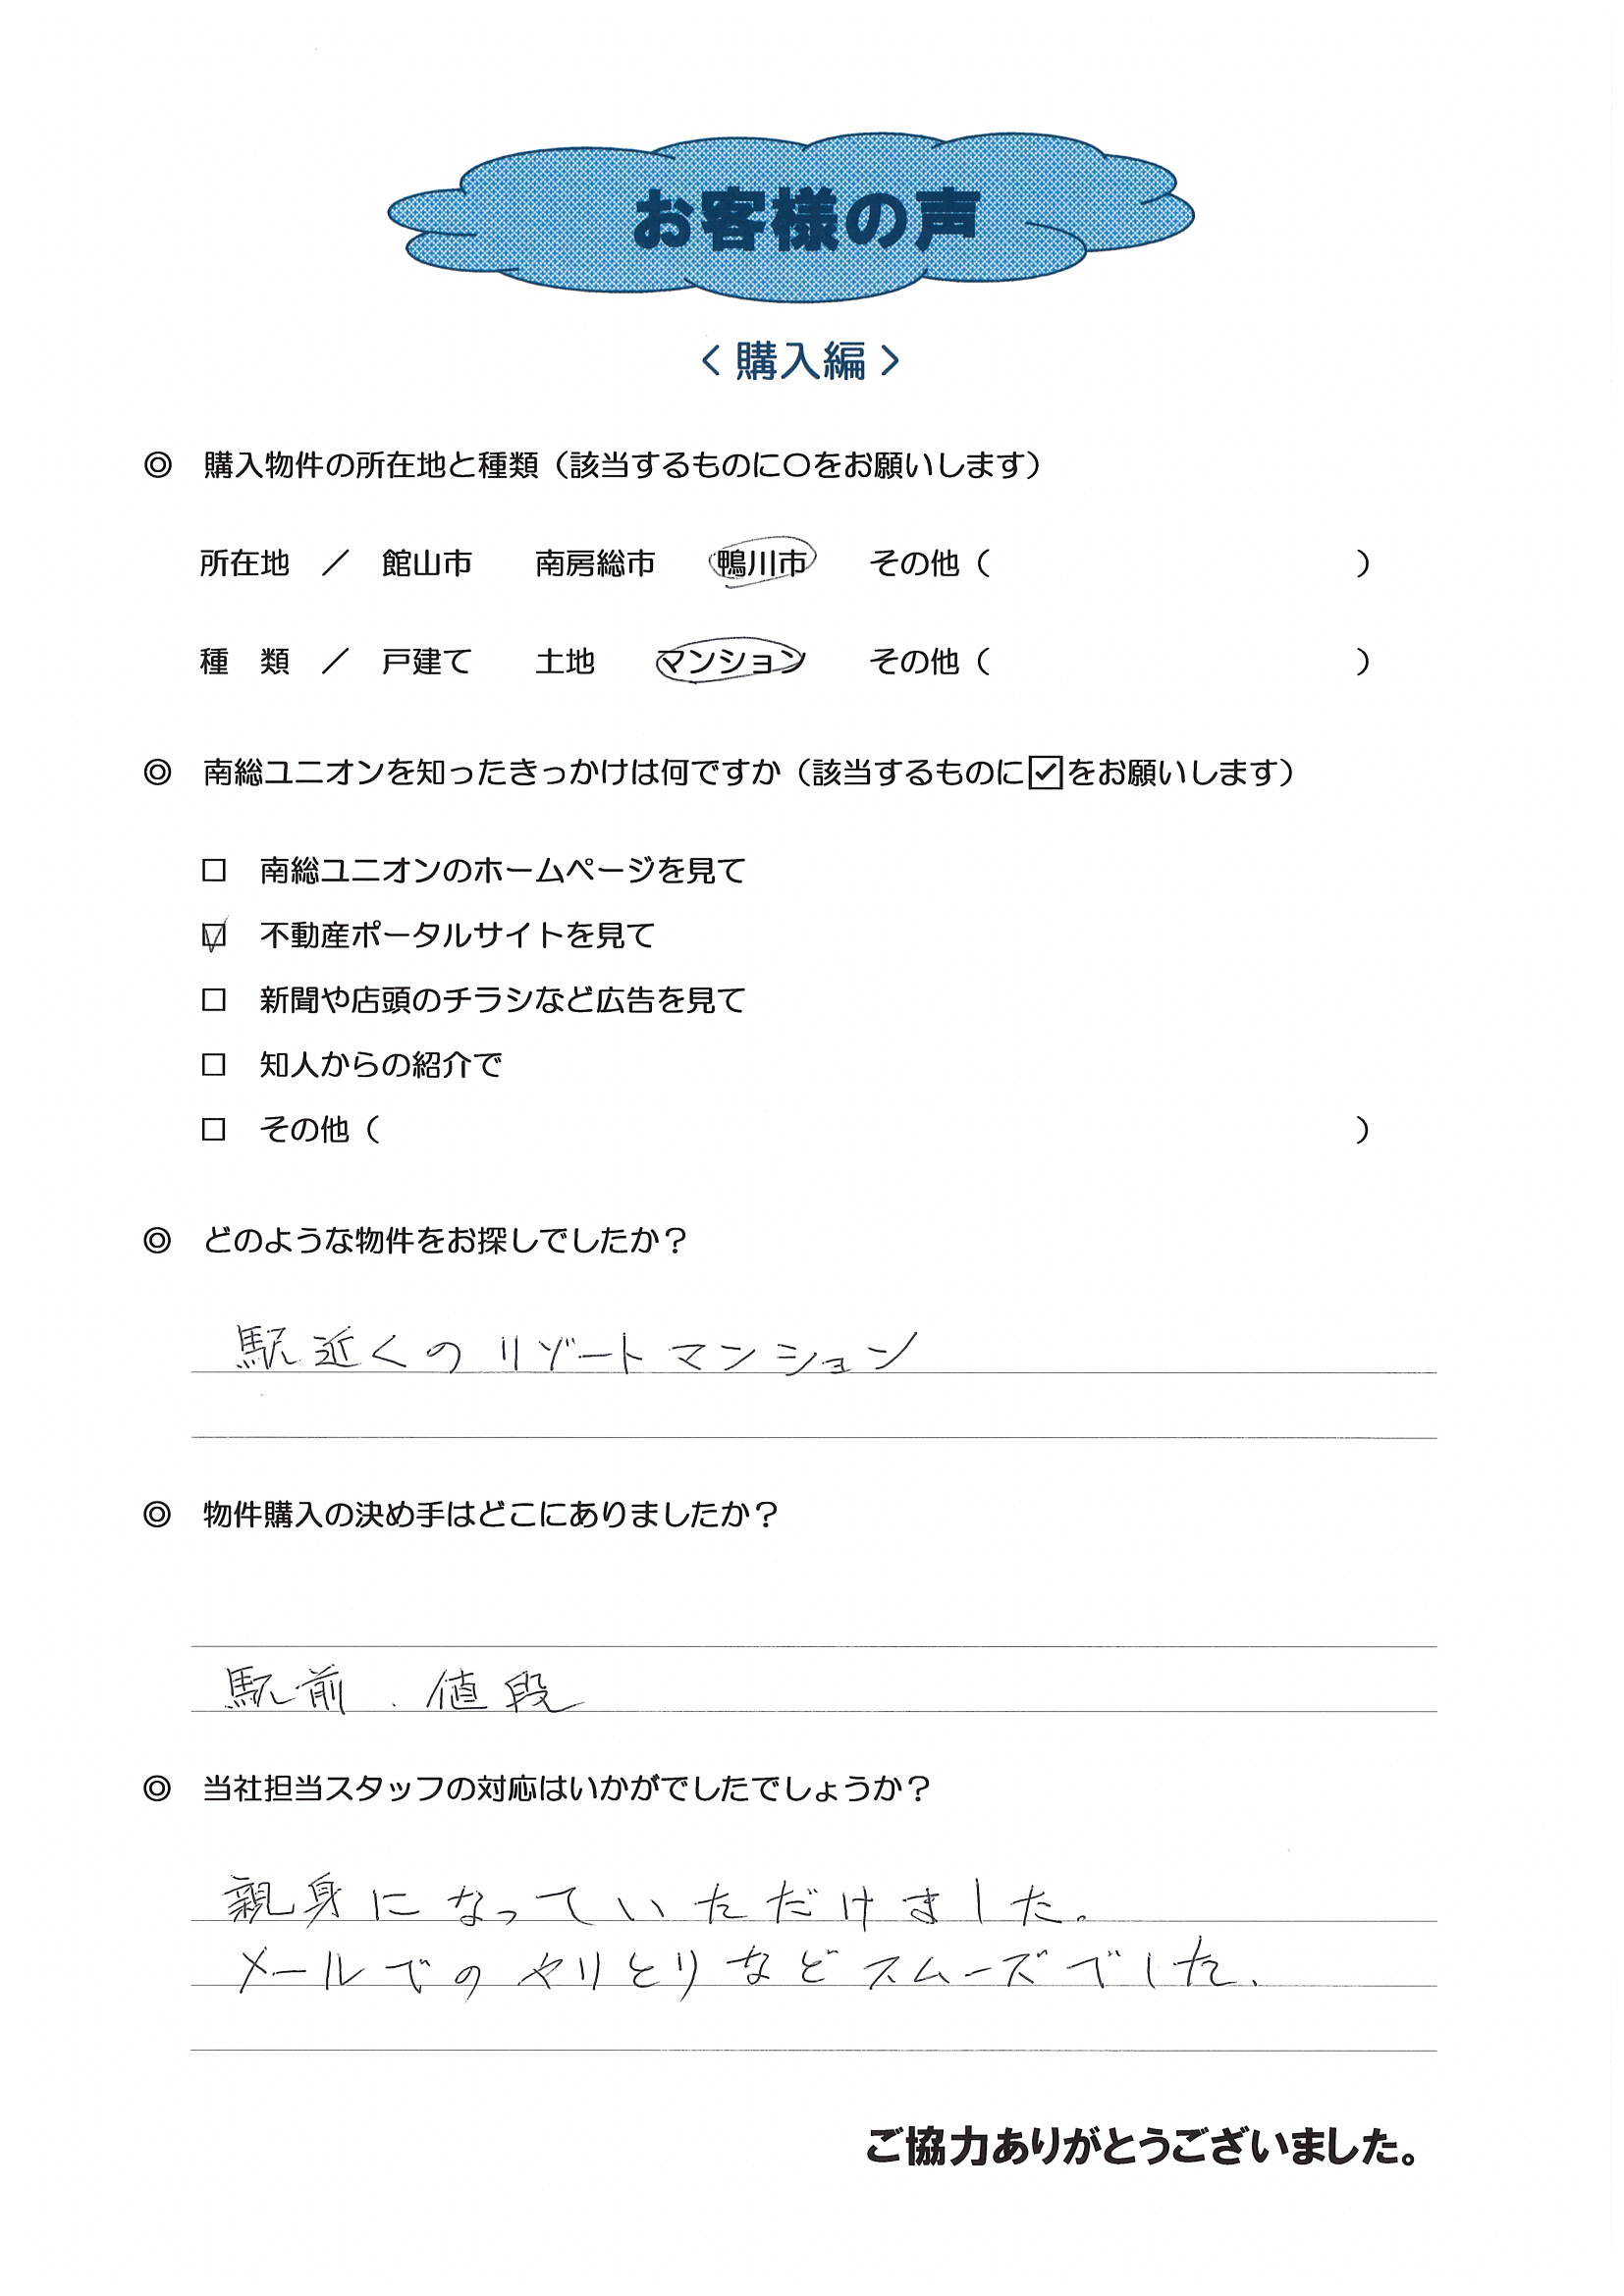 お客様の声
〈 購入編 〉
◎ 購入物件の所在地と種類（該当するものに○をお願いします）
所在地 ／ 館山市 南房総市 鴨川市 その他（ ）
種 類 ／ 戸建て 土地 マンション その他（ ）
◎ 南総ユニオンを知ったきっかけは何ですか（該当するものに☑をお願いします）
□ 南総ユニオンのホームページを見て
☑ 不動産ポータルサイトを見て
□ 新聞や店頭のチラシなど広告を見て
□ 知人からの紹介で
□ その他（ ）
◎ どのような物件をお探しでしたか？
駅近くのリゾートマンション
◎ 物件購入の決め手はどこにありましたか？
駅前、値段
◎ 当社担当スタッフの対応はいかがでしたでしょうか？
親身になっていただけました。
メールでのやりとりなどスムーズでした、
ご協力ありがとうございました。